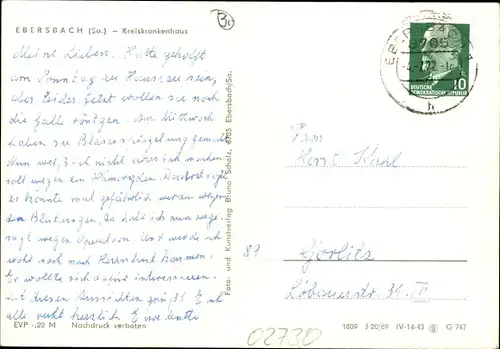 EBERSBACH (Sa.) – Kreiskrankenhaus
Meine Lieben. Hatte gehofft
am Sonntag zu Hause zu sein,
aber leider jetzt wollen sie noch
die Galle röntgen. Am Mittwoch
haben sie Blasenspiegelung gemacht.
Nun weiß ich nicht was ich machen
soll wegen den Hämorriden.
es könnte mal gefährlich werden wegen
den Blutungen, da hab ich nun zuge-
sagt wegen Operation. Und werde ich
wohl noch nach Herrnhut kommen.
Er wollte sich dafür interessieren.
mit diesen Aussichten grüßt Euch
alle recht herzlich Eure
EVP -,20 M Nachdruck verboten
Foto- und Kunstverlag Bruno Scholz, 8705 Ebersbach/Sa.
8705
h
10
DEUTSCHE
DEMOKRATISCHE REPUBLIK
Fam
Horst
Görlitz
Löbauerstr. 31 IV
89
02730
1809 J 20/69 IV-14-45 G 747